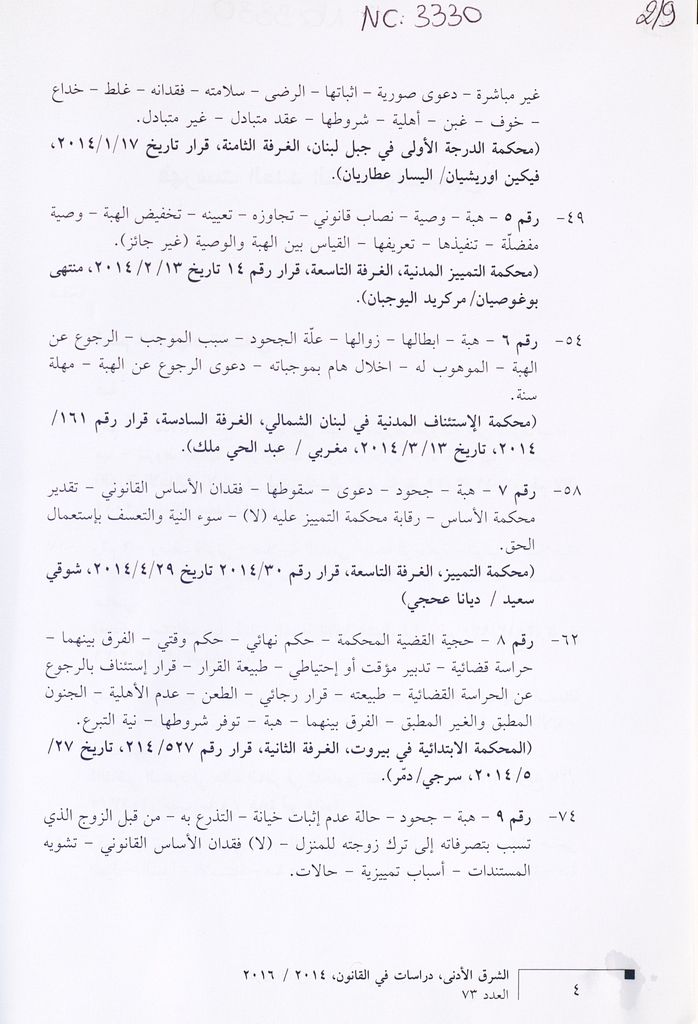 NC: 3330
2/9
غير مباشرة – دعوى صورية – اثباتها – الرضى – سلامته – فقدانه – غلط – خداع
– خوف – غبن – أهلية – شروطها – عقد متبادل – غير متبادل.
(محكمة الدرجة الأولى في جبل لبنان، الغرفة الثامنة، قرار تاريخ ٢٠١٤/١/١٧،
فيكين اوريشيان/ اليسار عطاريان).
٤٩– رقم ٥ – هبة – وصية – نصاب قانوني – تجاوزه – تعيينه – تخفيض الهبة – وصية
مفضلّة – تنفيذها – تعريفها – القياس بين الهبة والوصية (غير جائز).
(محكمة التمييز المدنية، الغرفة التاسعة، قرار رقم ١٤ تاريخ ٢٠١٤/٢/١٣، منتهى
بوغوصيان/ مركريد اليوجبان).
٥٤– رقم ٦ – هبة – ابطالها – زوالها – علّة الجحود – سبب الموجب – الرجوع عن
الهبة – الموهوب له – اخلال هام بموجباته – دعوى الرجوع عن الهبة – مهلة
سنة.
(محكمة الإستئناف المدنية في لبنان الشمالي، الغرفة السادسة، قرار رقم ١٦١/
٢٠١٤، تاريخ ٢٠١٤/٣/١٣، مغربي / عبد الحي ملك).
٥٨– رقم ٧ – هبة – جحود – دعوى – سقوطها – فقدان الأساس القانوني – تقدير
محكمة الأساس – رقابة محكمة التمييز عليه (لا) – سوء النية والتعسف بإستعمال
الحق.
(محكمة التمييز، الغرفة التاسعة، قرار رقم ٢٠١٤/٣٠ تاريخ ٢٠١٤/٤/٢٩، شوقي
سعيد / ديانا عحجي)
٦٢– رقم ٨ – حجية القضية المحكمة – حكم نهائي – حكم وقتي – الفرق بينهما –
حراسة قضائية – تدبير مؤقت أو إحتياطي – طبيعة القرار – قرار إستئناف بالرجوع
عن الحراسة القضائية – طبيعته – قرار رجائي – الطعن – عدم الأهلية – الجنون
المطبق والغير المطبق – الفرق بينهما – هبة – توفر شروطها – نية التبرع.
(المحكمة الابتدائية في بيروت، الغرفة الثانية، قرار رقم ٢١٤/٥٢٧، تاريخ ٢٧/
٢٠١٤/٥، سرجي/ دمّر).
٧٤– رقم ٩ – هبة – جحود – حالة عدم إثبات خيانة – التذرع به – من قبل الزوج الذي
تسبب بتصرفاته إلى ترك زوجته للمنزل – (لا) فقدان الأساس القانوني – تشويه
المستندات – أسباب تمييزية – حالات.
الشرق الأدنى، دراسات في القانون، ٢٠١٤ / ٢٠١٦
العدد ٧٣
٤